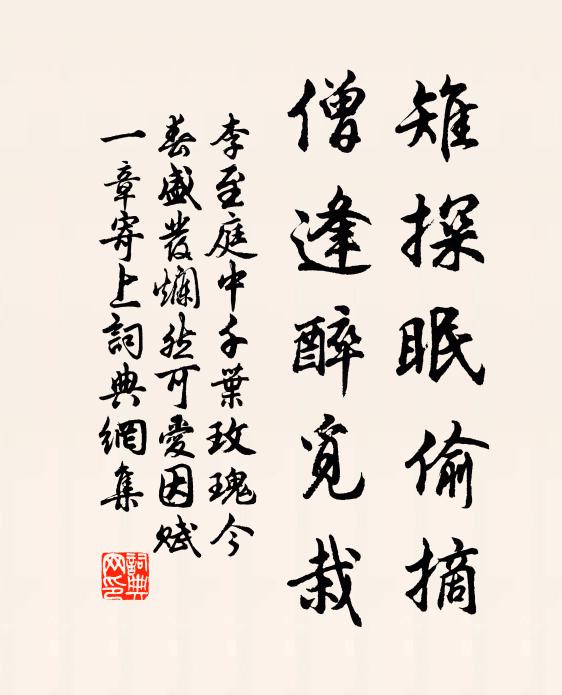 雉探眠偷摘
僧逢醉覓栽
李至庭中千葉玫瑰今
春盛發爛然可愛因賦
一章寄上詞典網集
詞典
网印